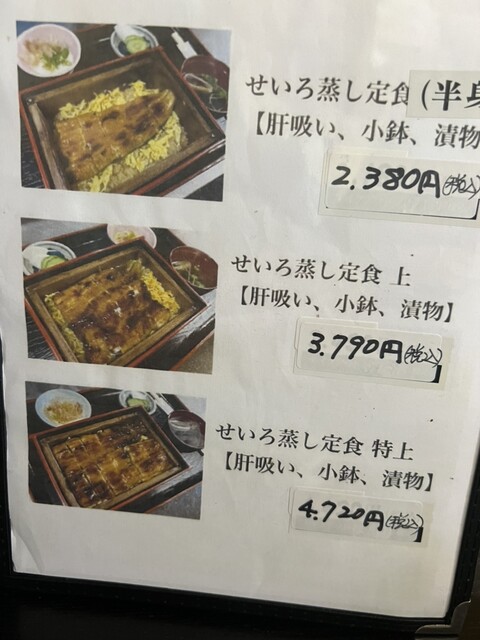 せいろ蒸し定食 (半身
【肝吸い、小鉢、漬物
2.380円(税込)
せいろ蒸し定食 上
【肝吸い、小鉢、漬物】
3.790円(税込)
せいろ蒸し定食 特上
【肝吸い、小鉢、漬物】
4.720円(税込)